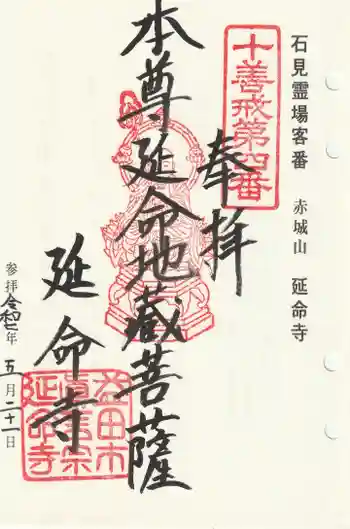 石見霊場客番 赤城山 延命寺
十善戒第四番
奉拝
本尊延命地蔵菩薩
延命寺
益田市
真言宗
延命寺
参拝令和二年五月二十一日